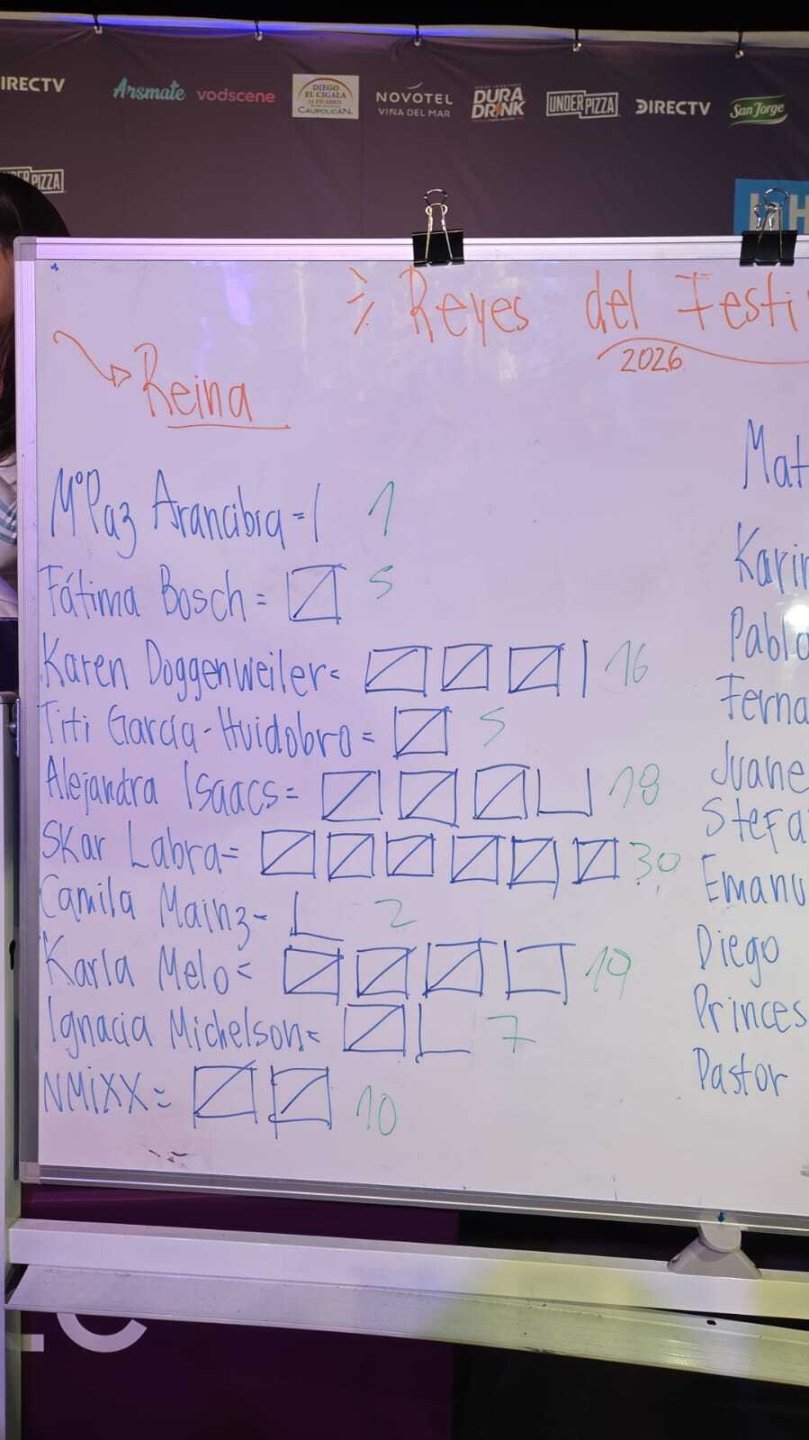 IRECTV
Arsmate
vodscene
DIEGO EL CIGALA
CAUPOLICÁN
NOVOTEL
VIÑA DEL MAR
DURA DRINK
UNDER PIZZA
DIRECTV
San Jorge
PIZZA
Reyes del Festi
2026
Reina
Mº Paz Arancibia = 1
Fátima Bosch = 5
Karen Doggenweiler = 16
Titi García-Huidobro = 5
Alejandra Isaacs = 18
Skar Labra = 30
Camila Mainz - 2
Karla Melo = 19
Ignacia Michelson = 7
NMiXX = 10
Mat
Karin
Pablo
Ferna
Juane
Stefa
Emanu
Diego
Princes
Pastor